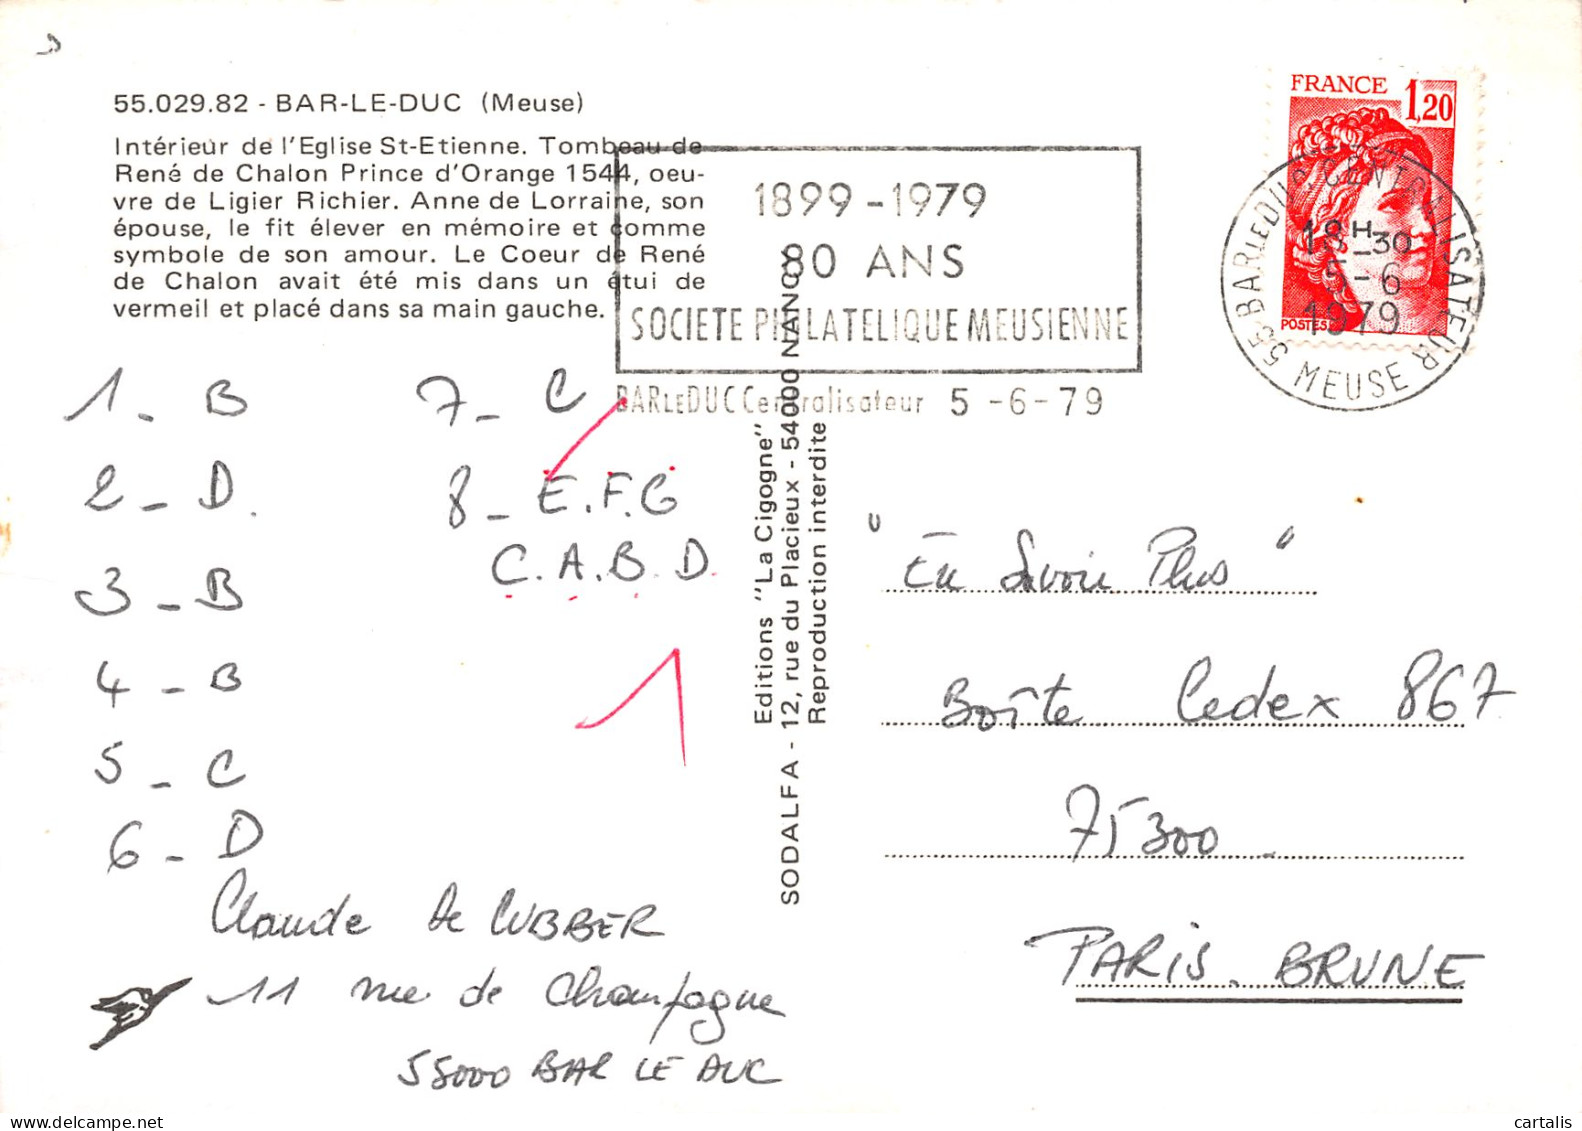 55.029.82 - BAR-LE-DUC (Meuse)
Intérieur de l'Eglise St-Etienne. Tombeau de
René de Chalon Prince d'Orange 1544, oeu-
vre de Ligier Richier. Anne de Lorraine, son
épouse, le fit élever en mémoire et comme
symbole de son amour. Le Coeur de René
de Chalon avait été mis dans un étui de
vermeil et placé dans sa main gauche.
1899-1979
80 ANS
SOCIETE PHILATELIQUE MEUSIENNE
BAR LE DUC Centralisateur 5 -6-79
FRANCE 1,20
POSTES
55 BAR LE DUC CENTRALISATEUR
18H-30
5-6
1979
MEUSE
1 - B
2 - D.
3 - B
4 - B
5 - C
6 - D
7 - C
8 - E.F.G
C.A.B.D.
1
Claude De CUBBER
11 rue de Champagne
55000 BAR LE DUC
Editions "La Cigogne"
SODALFA - 12, rue du Placieux - 54000 NANCY
Reproduction interdite
"En Savoir Plus"
Boîte Cedex 867
75300
PARIS. BRUNE
cartalis